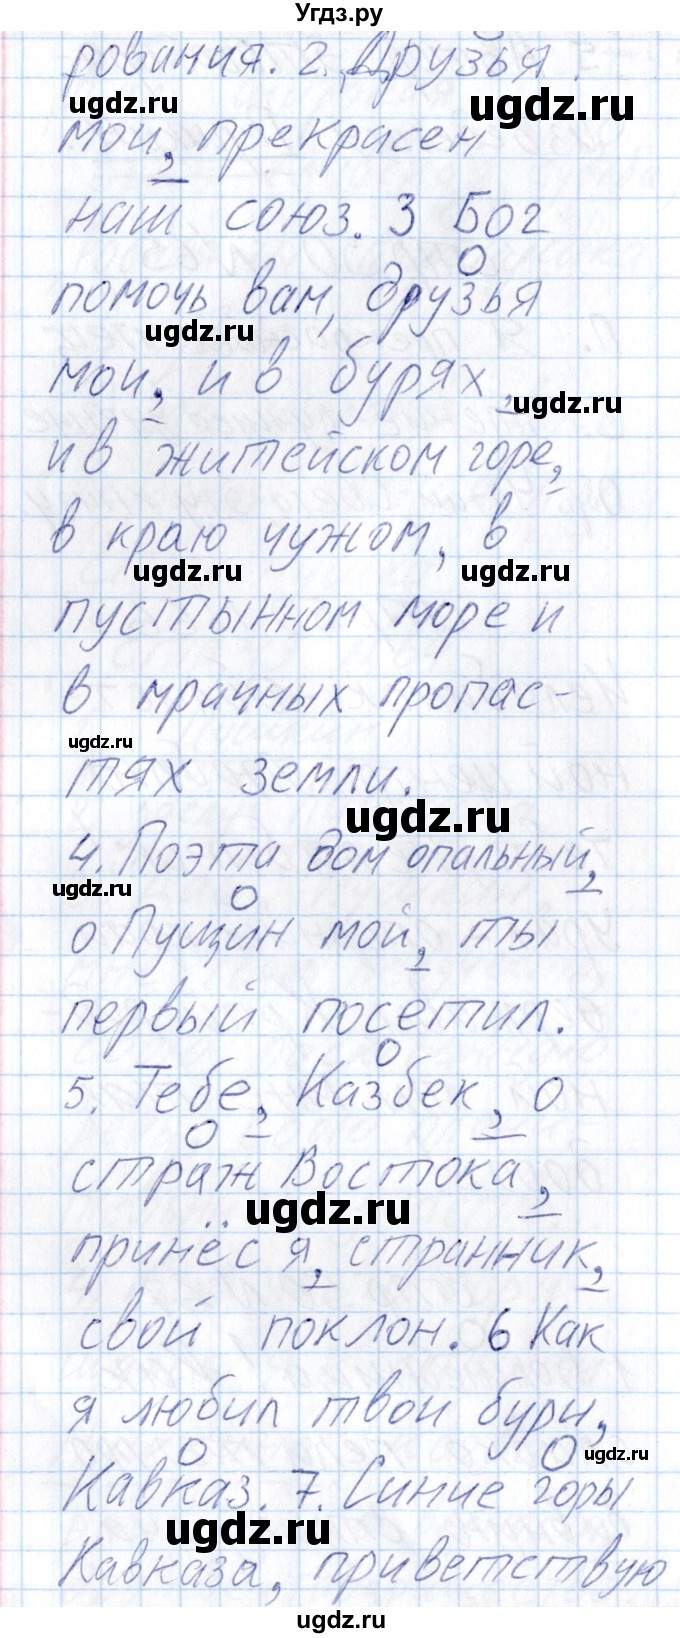 Угдз.ру
рования. 2. Друзья
ugdz.ru ugdz.ru
мои, прекрасен
наш союз. 3 Бог
помочь вам, друзья
ugdz.ru
мои, и в бурях,
ugdz.ru
и в житейском горе,
в краю чужом, в
ugdz.ru ugdz.ru
пустынном море и
в мрачных пропас-
ugdz.ru
тях земли.
ugdz.ru
4. Поэта дом опальный,
ugdz.ru
о Пущин мой, ты
первый посетил.
5. Тебе, Казбек, о
страж Востока,
ugdz.ru
принёс я, странник,
свой поклон. 6 Как
я любил твои бури,
ugdz.ru
Кавказ. 7. Синие горы
ugdz.ru
Кавказа, приветствую
ugdz.ru